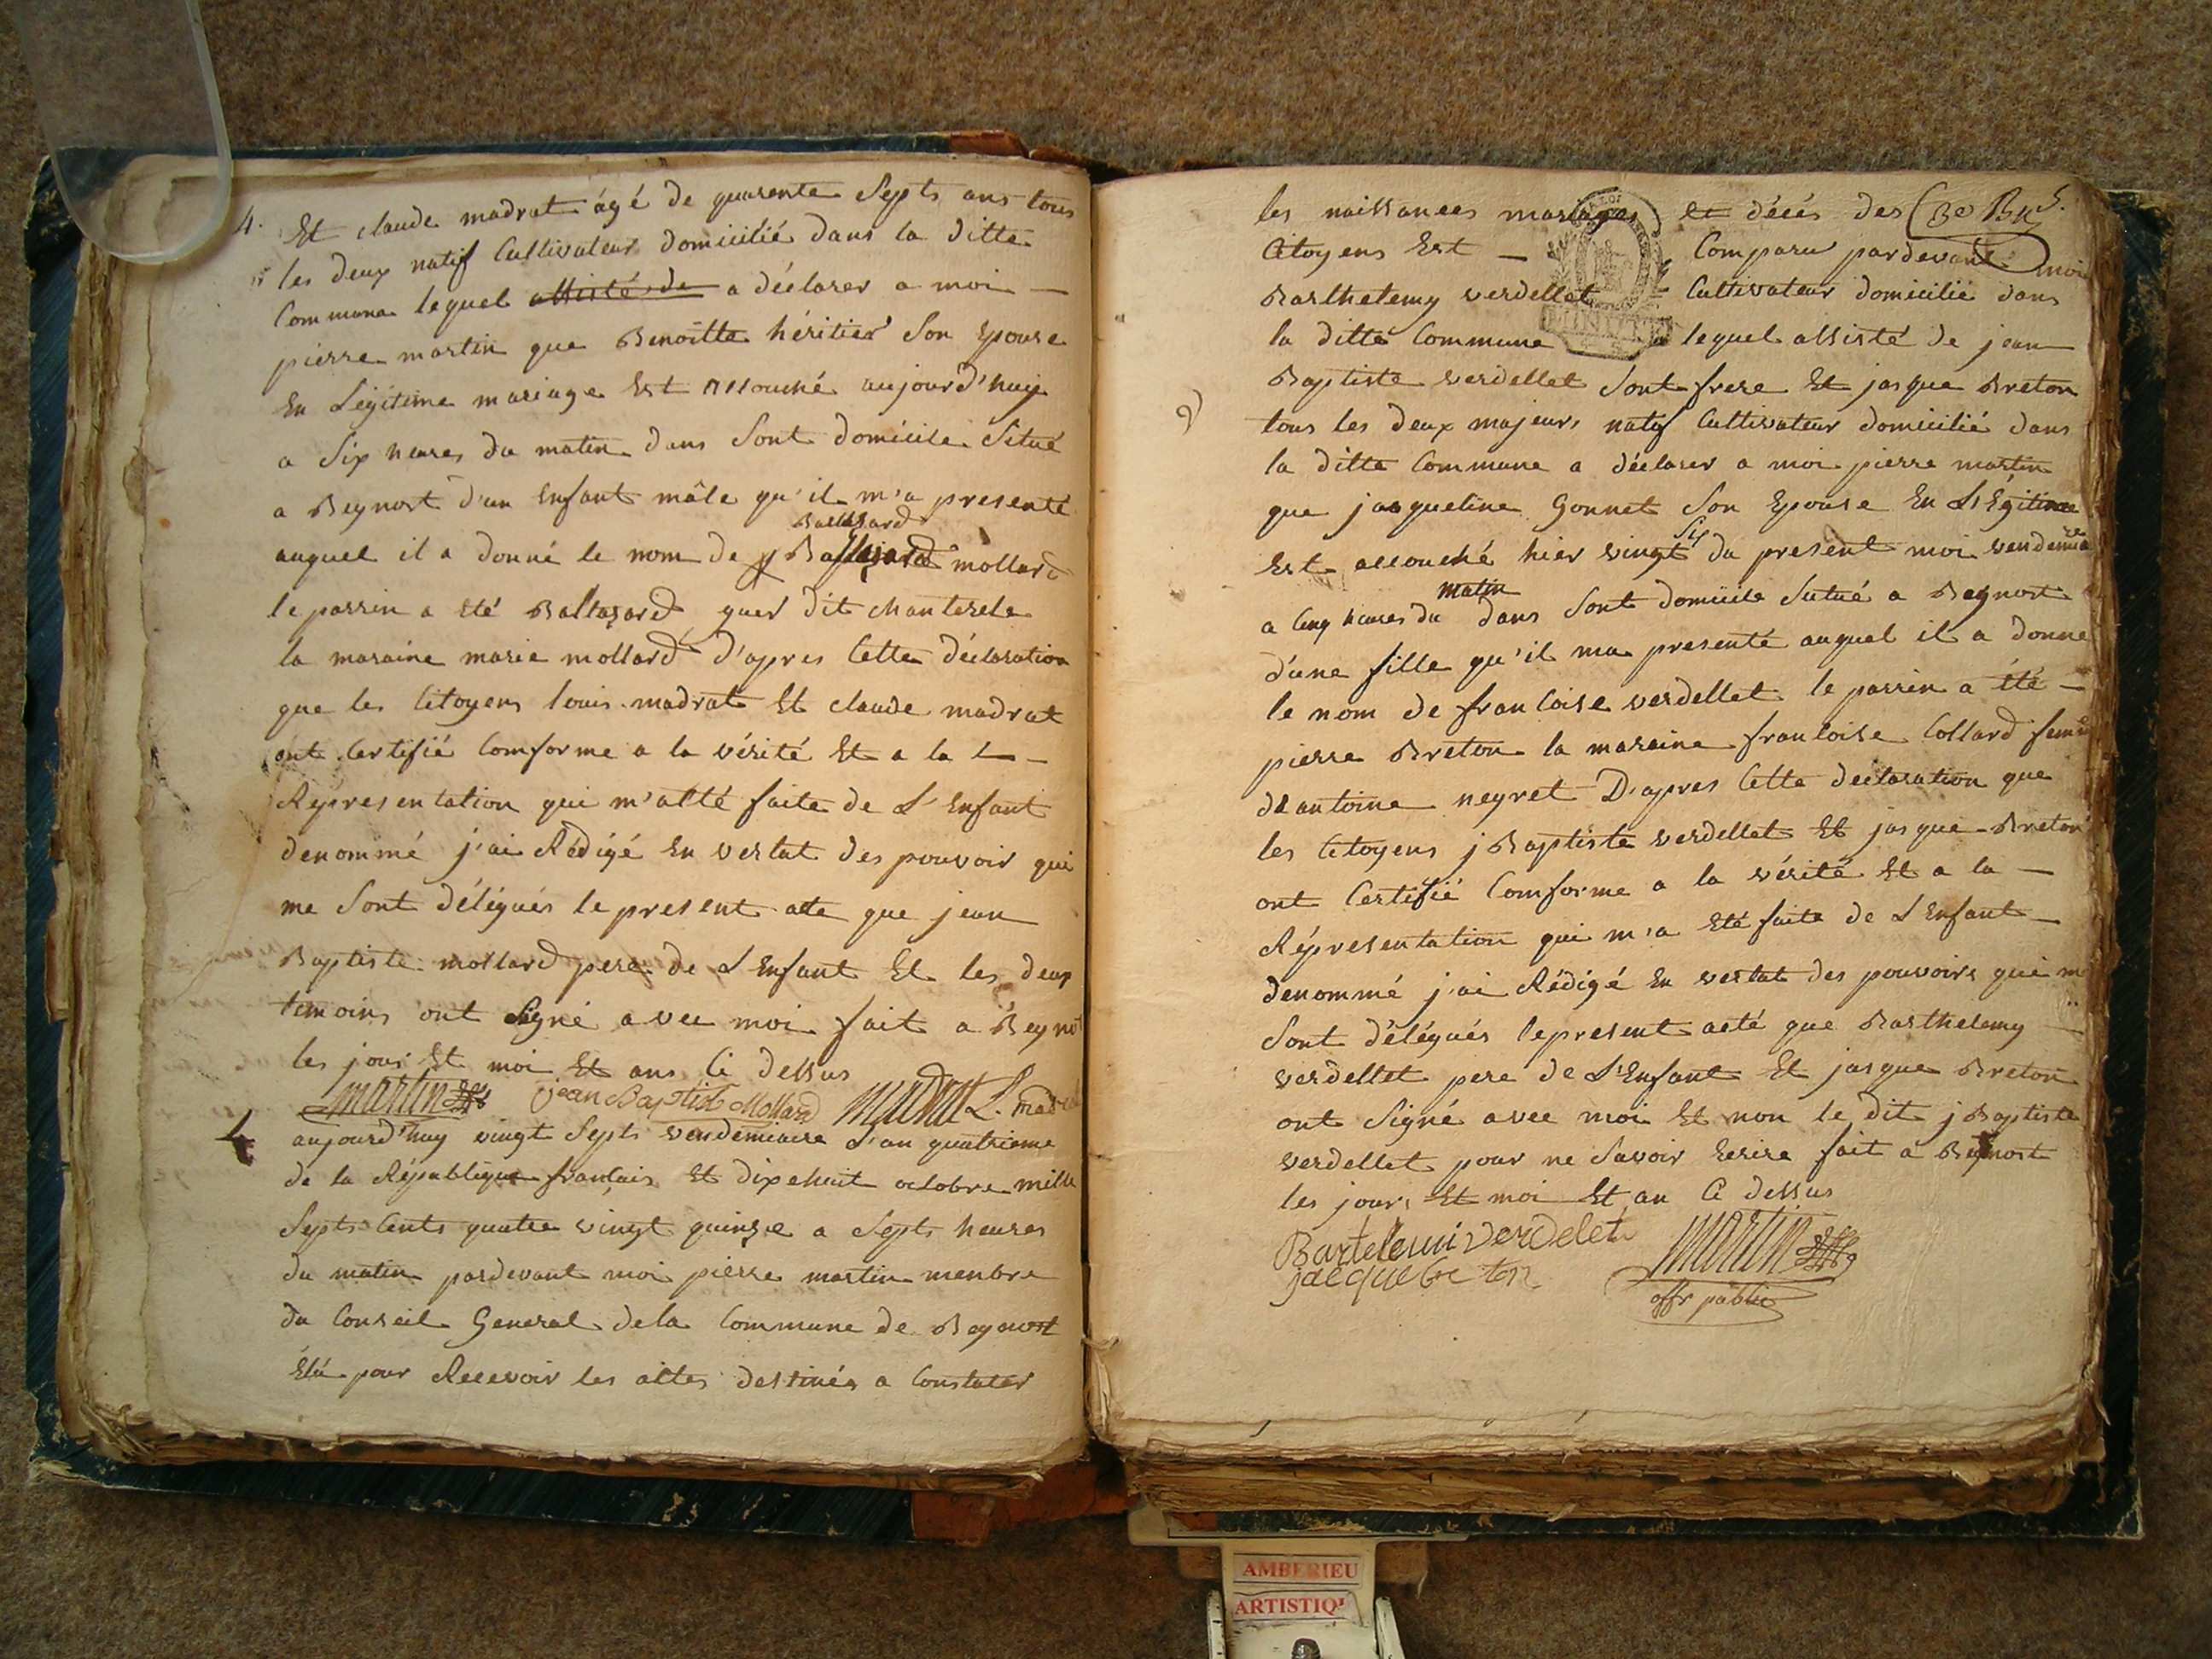 4. Et claude madrat âgé de quarente Septs ans tous
les deux natif Cultivateur domicilié dans la ditte
Commune lequel assisté de a déclarer a moi —
pierre martin que Benoitte héritier Son Epouse
En Légitime mariage Est accouché aujourd'huy
a Six heures du matin dans Sont domicile Situé
a Beynost d'un Enfant mâle qu'il m'a presenté
Baltazard
auquel il a donné le nom de mollard
le parrin a été Baltazard guer dit chanterele
la maraine marie mollard d'apres Cette déclaration
que les Citoyens louis madrat Et claude madrat
ont Certifié Comforme a la vérité Et a la
Répresentation qui m'a été faite de L'Enfant
denommé j'ai Rédigé En vertut des pouvoir qui
me Sont délégués le present acte que jean
Baptiste mollard pere de L'Enfant Et les deux
temoins ont Signé avec moi fait a Beynost
les jour Et moi Et ans Ci dessus
martin jean Baptist Mollard madrat L. madrat
4 aujourd'huy vingt Septs vendemiaire L'an quatrieme
de la République francais Et dixehuit octobre mille
Septs Cents quatre vingt quinze a Septs heures
du matin pardevant moi pierre martin menbre
du Conseil General dela Commune de Beynost
Elú pour Recevoir les actes destinés a Constater
les naissances mariages et décés des
Citoyens Est — Comparu pardevant moi
Barthelemy verdellet Cultivateur domicilié dans
la ditte Commune lequel assisté de jean
Baptiste verdellet Sont frere Et jasque Breton
tous les deux majeurs natif Cultivateur domicilié dans
la ditte Commune a déclarer a moi pierre martin
que jaqueline Gonnet Son Epouse En LÉgitime
Est accouché hier vingt Six du present moi vendemiaire
matin
a Cinq heures du dans Sont domicile Situé a Beynost
d'une fille qu'il ma presenté auquel il a donné
le nom de francoise verdellet le parrin a été —
pierre Breton la maraine francoise Collard femme
de antoine neyret D'apres Cette declaration que
les Citoyens j Baptiste verdellet Et jasque Breton
ont Certifié Comforme a la vérité Et a la —
Répresentation qui m'a Eté faite de L'Enfant —
denommé j'ai Rédigé En vertut des pouvoirs qui me
Sont délégués lepresent acté que Barthelemy —
verdellet pere de L'Enfant Et jasque Breton
ont Signé avec moi Et non le dit j Baptiste
verdellet pour ne Savoir Ecrire fait a Beynost
les jours Et moi Et an Ci dessus
Bartelemi verdelet martin
jacque breton offr public
AMBERIEU
ARTISTIQ